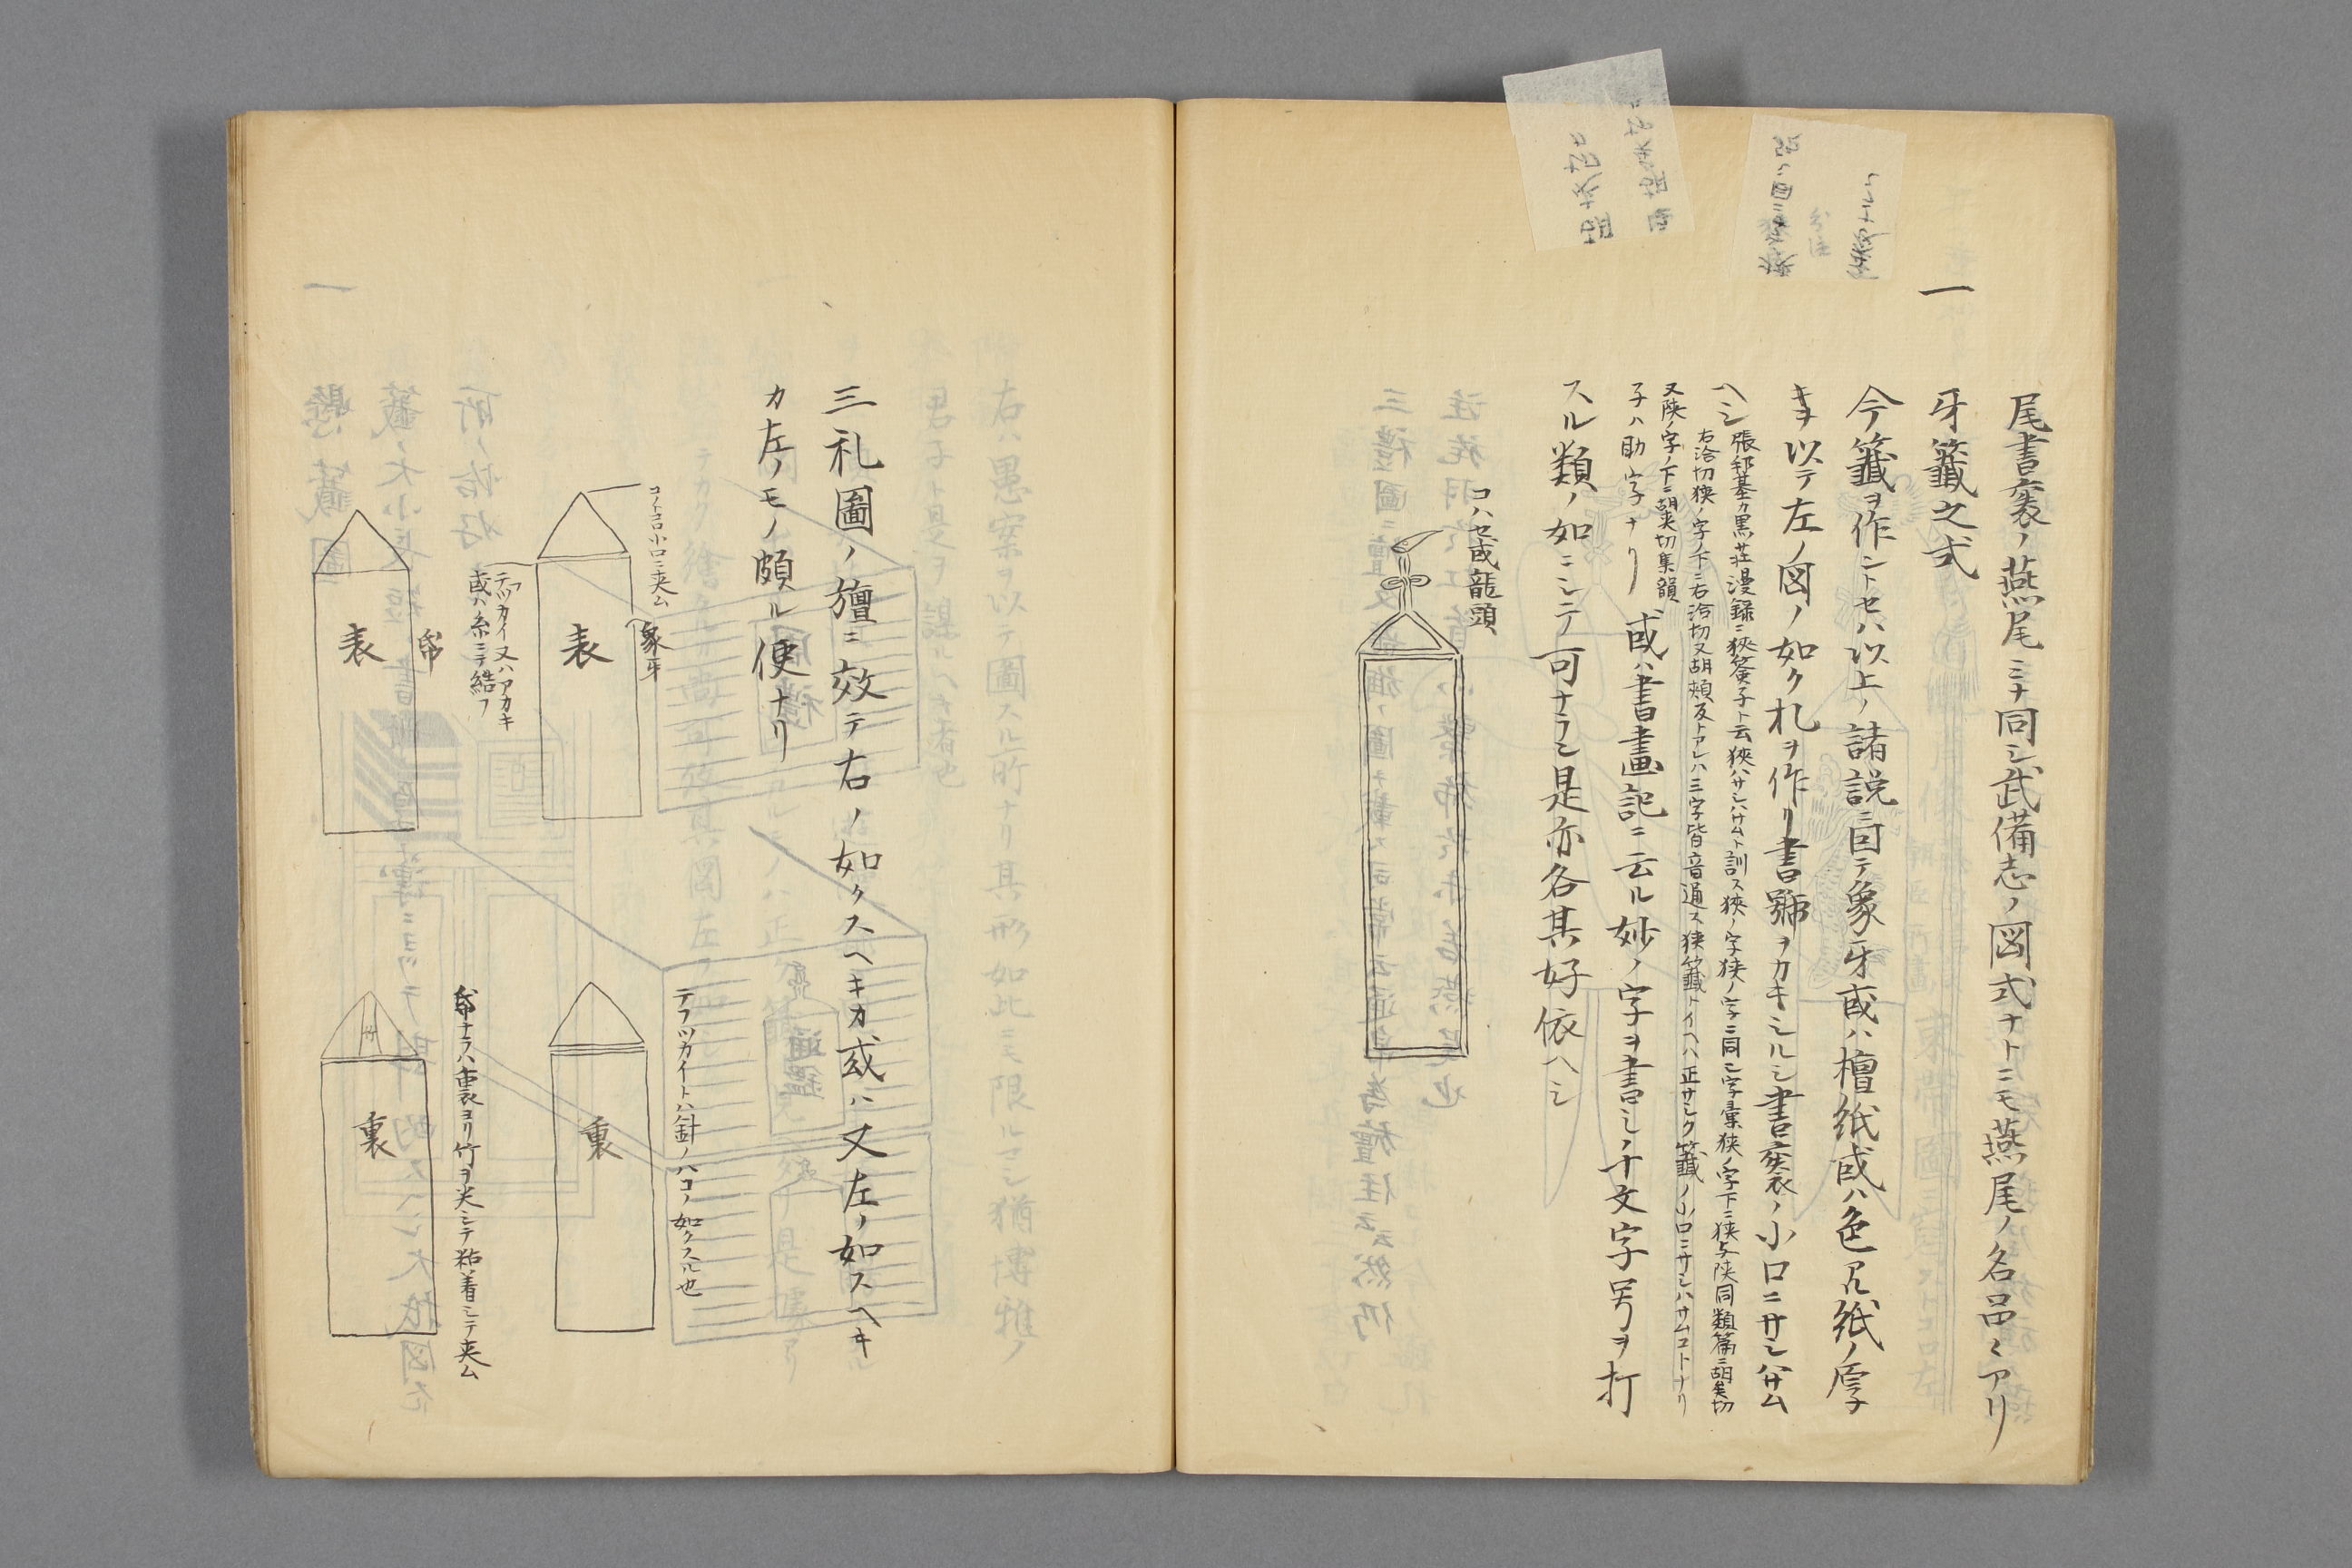 尾書袠ノ燕尾ミナ同シ武備志ノ図式ナトニモ燕尾ノ名呂〻アリ
一
牙籤之式
今籤ヲ作ントセハ以上ノ諸説ニ因テ象牙或ハ檀紙或ハ色アル紙ノ厚
キヲ以テ左ノ図ノ如ク札ヲ作リ書號ヲカキシルシ書袠ノ小口ニサシハサム
ヘシ
張邦基カ黒荘漫録ニ狹簽子ト云狹ハサシハサムト訓ス狹ノ字狭ノ字ニ同シ字彙狹ノ字下ニ狭与陜同類篇ニ胡夾切
右洽切狹ノ字ノ下ニ右洽切又胡頰反トアレハ三字皆音通ス狹籤トイヘハ正サシク籤ノ小口ニサシハサムコトナリ
又陜ノ字ノ下ニ胡夾切集韻
子ハ助字ナリ
或ハ書畫記ニ云ル妙ノ字ヲ書シノ十文字号ヲ打
スル類ノ如ニシテ可ナラン是亦各其好依ヘシ
コハセ或龍頭
三礼圖ノ旜ニ效テ右ノ如クスヘキカ或ハ又左ノ如スヘキ
カ左ノモノ頗ル便ナリ
コノトコロ小口ニ夾ム
象牙
表
テフツカイ又ハアカキ
或ハ糸ニテ結フ
帋
表
テフツカイトハ針ノハコノ如クスル也
裏
帋ナラハ裏ヨリ竹ヲ夾シテ粘着シテ夾ム
裏
竹